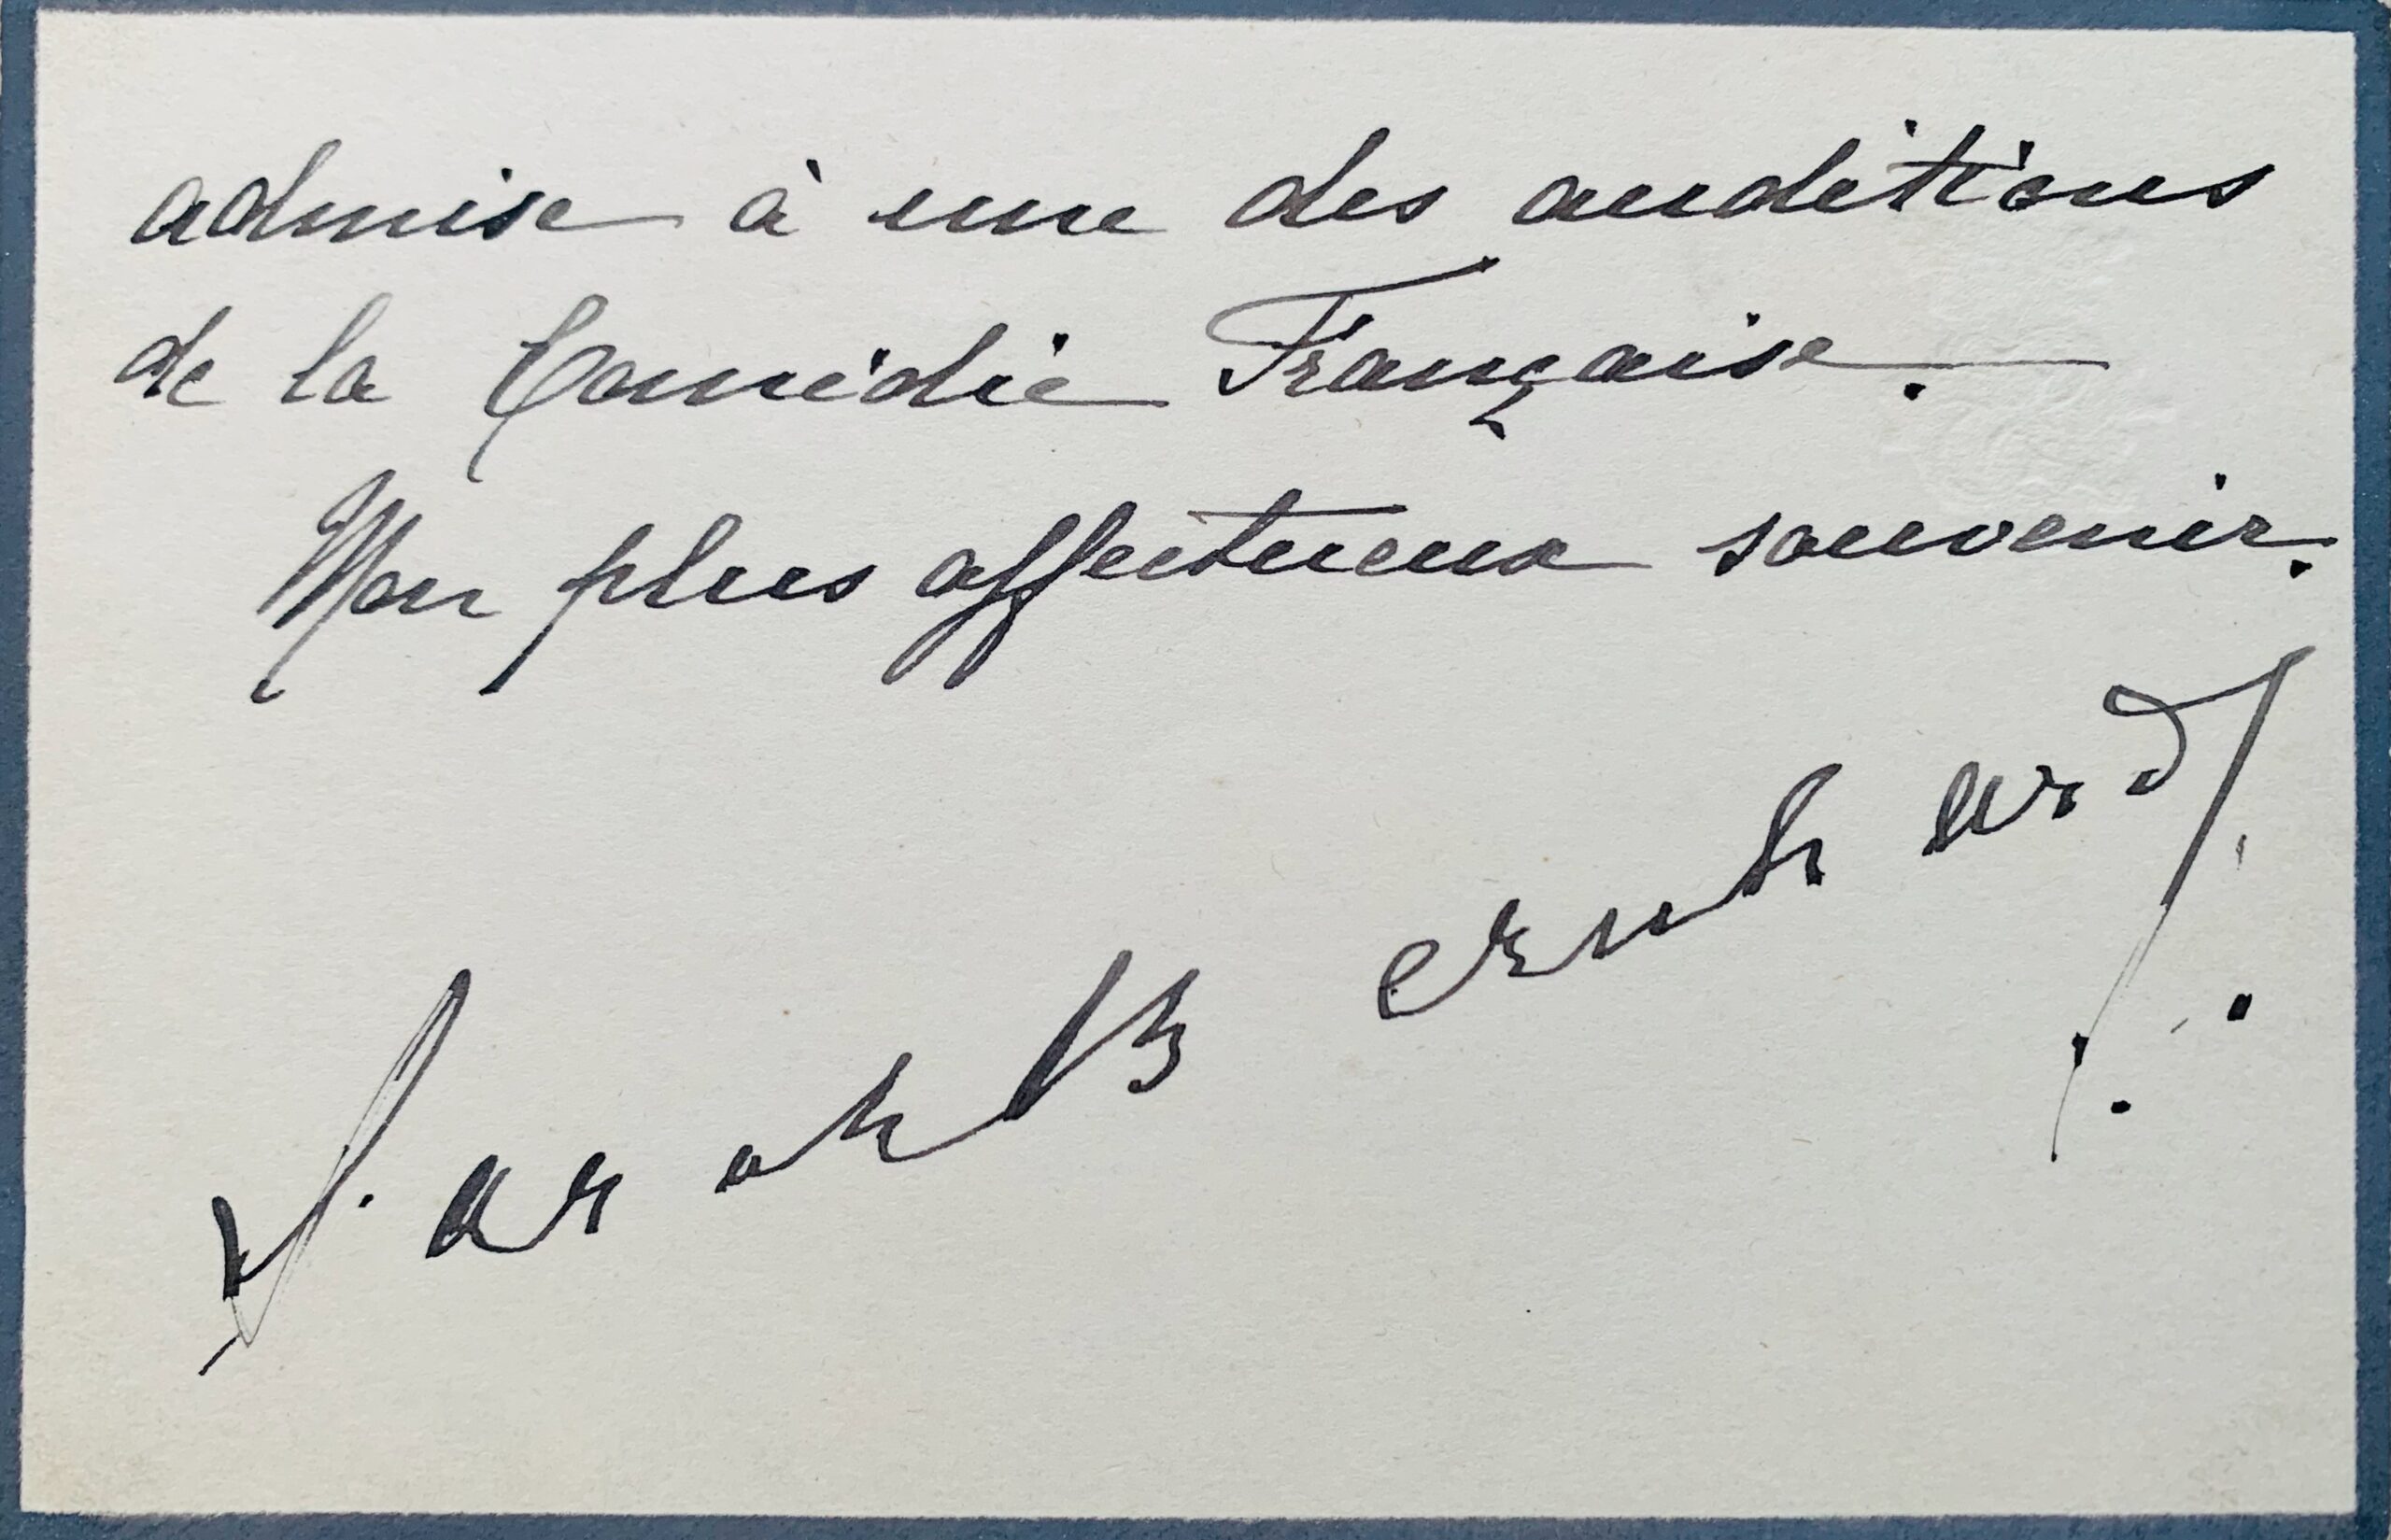 admise à une des auditions
de la Comédie Française.
Mon plus affectueux souvenir.
Sarah Bernhardt